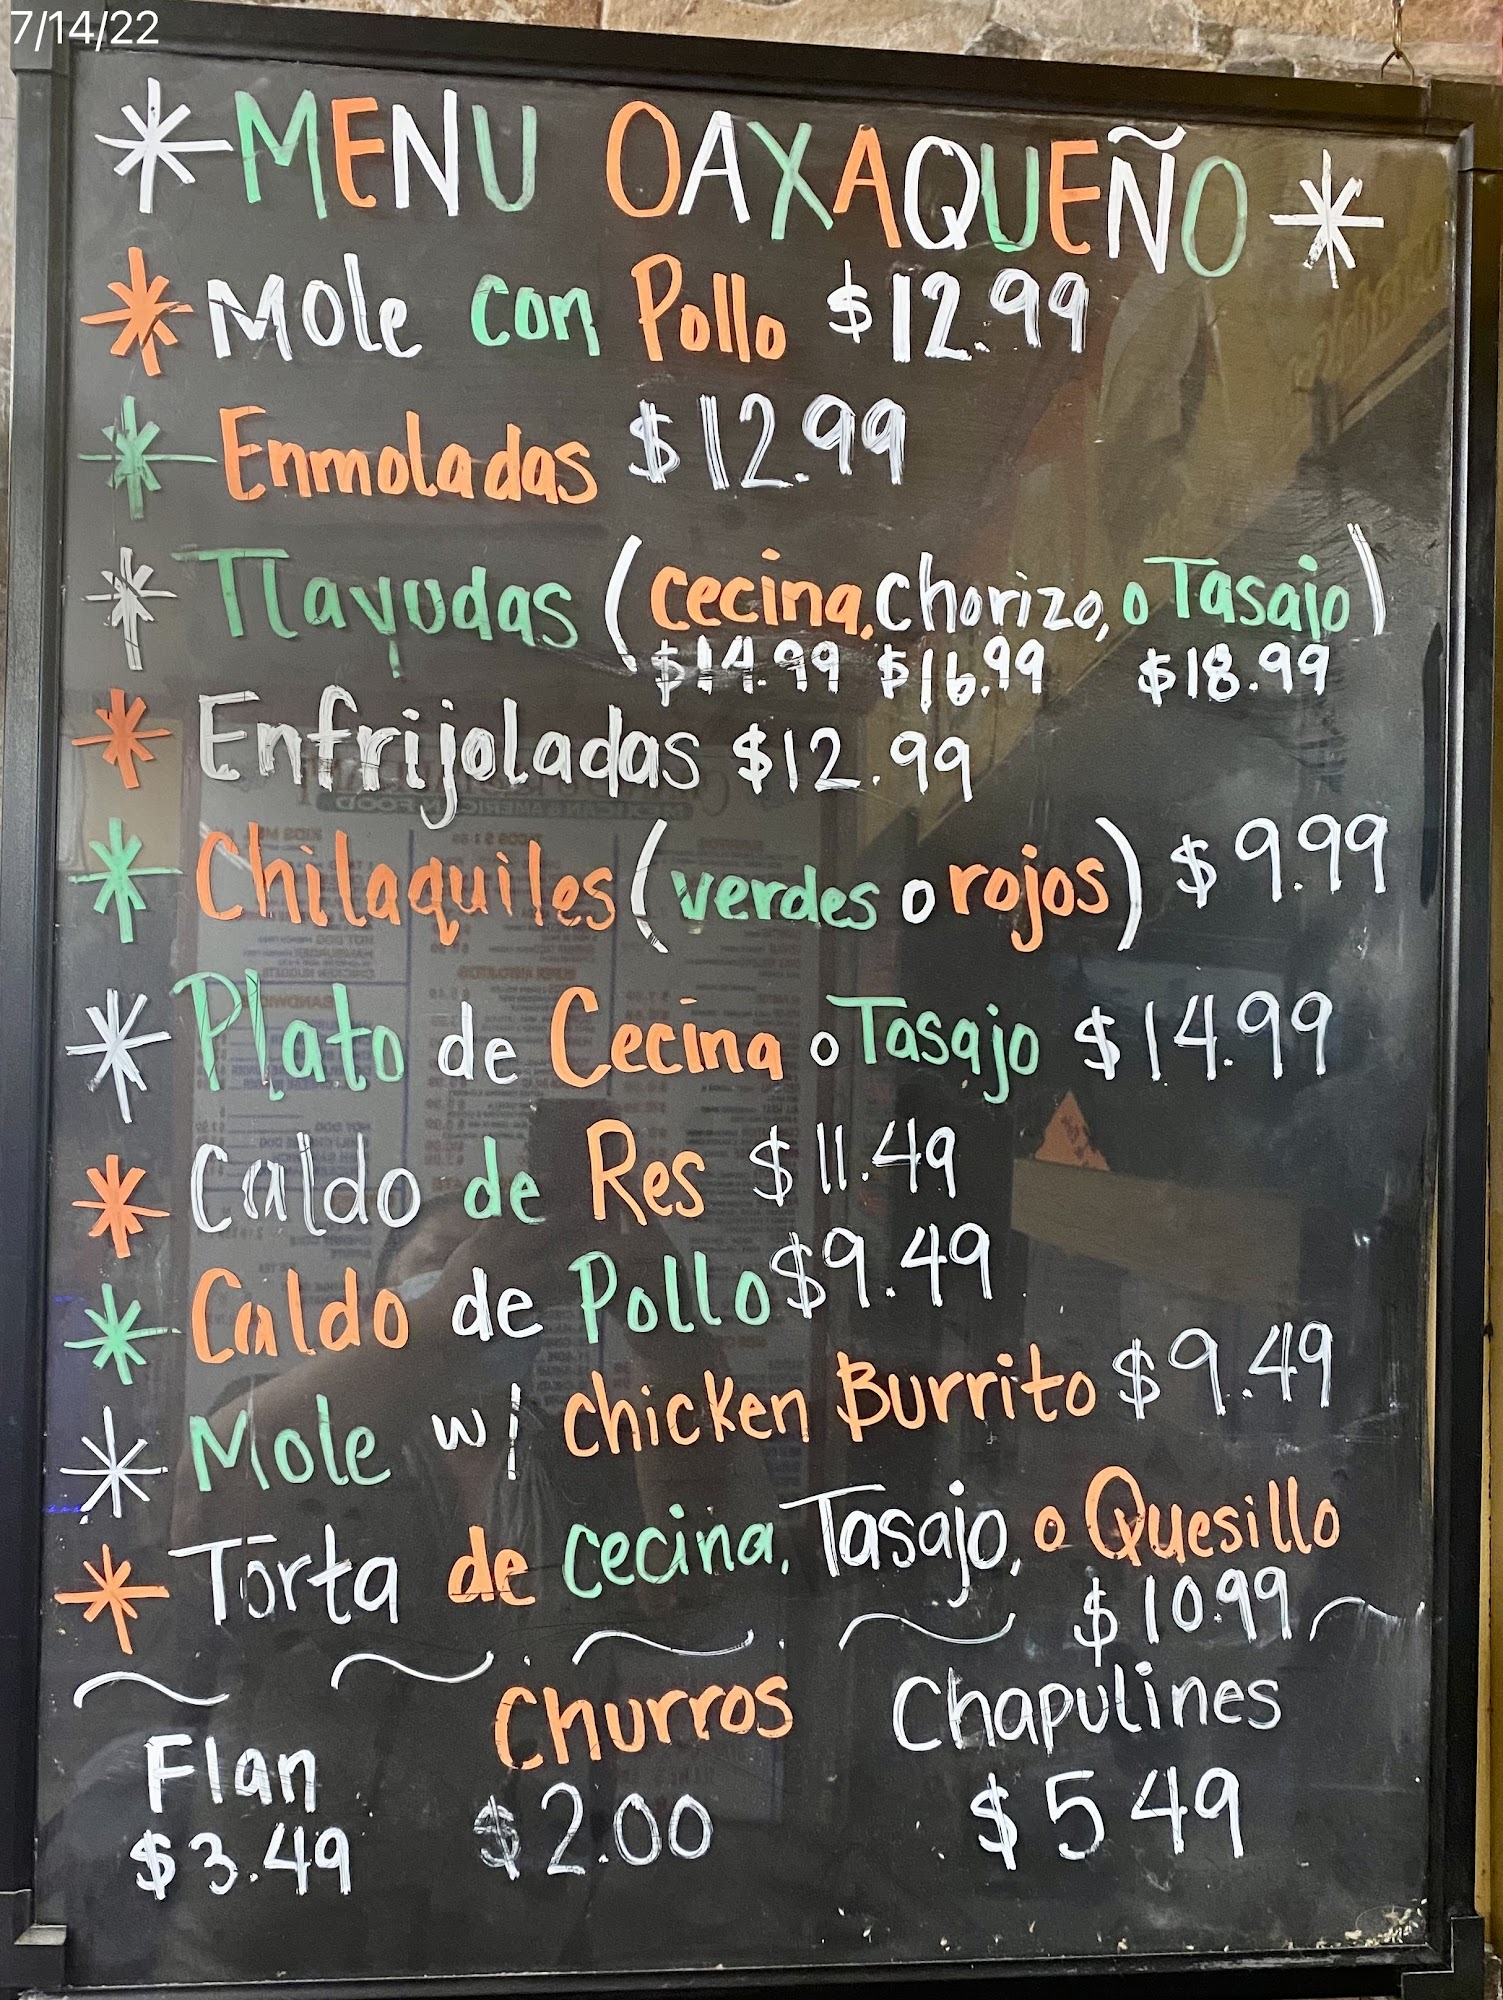 7/14/22
MENU OAXAQUEÑO
Mole con Pollo $12.99
Enmoladas $12.99
Tlayudas (cecina, Chorizo, o Tasajo)
$14.99 $16.99 $18.99
Enfrijoladas $12.99
Chilaquiles (verdes o rojos) $9.99
Plato de Cecina o Tasajo $14.99
Caldo de Res $11.49
Caldo de Pollo $9.49
Mole w/ chicken Burrito $9.49
Torta de cecina, Tasajo, o Quesillo
$10.99
Flan Churros Chapulines
$3.49 $2.00 $5 49